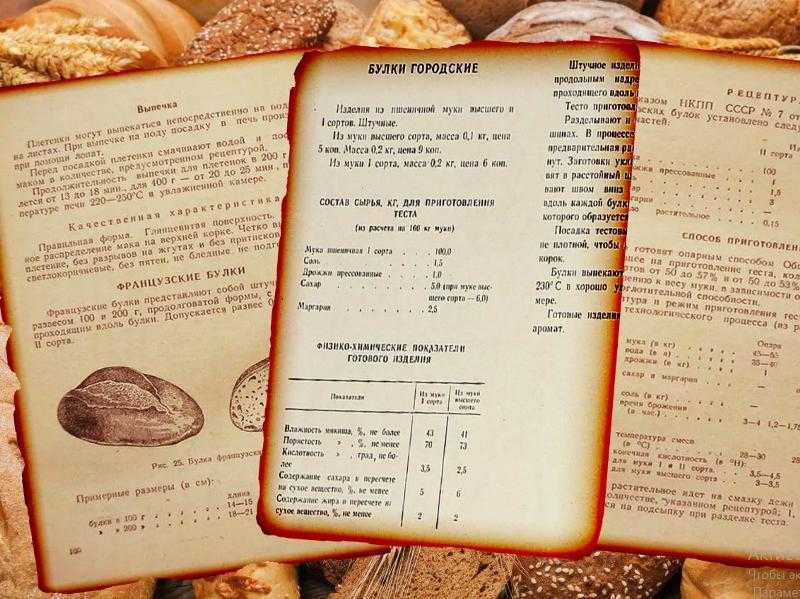 Выпечка
Плетенки могут выпекаться непосредственно на под
на листах. При выпечке на поду посадку в печь произ
при помощи лопат.
Перед посадкой плетенки смачивают водой и пос
маком в количестве, предусмотренном рецептурой.
Продолжительность выпечки для плетенок в 200 г
лется от 13 до 18 мин., для 400 г — от 20 до 25 мин., п
пературе печи 220—250°С и увлажненной камере.
Качественная характеристика
Правильная форма. Глянцевитая поверхность.
ное распределение мака на верхней корке. Четко в
плетение, без разрывов на жгутах и без притисков
светлокоричневые, без пятен, не бледные, не подг
ФРАНЦУЗСКИЕ БУЛКИ
Французские булки представляют собой штучн
развесом 100 и 200 г, продолговатой формы, с
проходящим вдоль булки. Допускается развес
II сорта.
Рис. 25. Булка французска
Примерные размеры (в см):
длина
булки в 100 г 14—15
» » 200 » 18—21
БУЛКИ ГОРОДСКИЕ
Изделия из пшеничной муки высшего и
I сортов. Штучные.
Из муки высшего сорта, масса 0,1 кг, цена
5 коп. Масса 0,2 кг, цена 9 коп.
Из муки I сорта, масса 0,2 кг, цена 6 коп.
СОСТАВ СЫРЬЯ, КГ, ДЛЯ ПРИГОТОВЛЕНИЯ
ТЕСТА
(из расчета на 100 кг муки)
Мука пшеничная I сорта . . . . 100,0
Соль . . . . 1,5
Дрожжи прессованные . . . . 1,0
Сахар . . . . 5,0 (при муке выс-
шего сорта — 6,0)
Маргарин . . . . 2,5
ФИЗИКО-ХИМИЧЕСКИЕ ПОКАЗАТЕЛИ
ГОТОВОГО ИЗДЕЛИЯ
Показатели Из муки I сорта Из муки высшего сорта
Влажность мякиша, %, не более 43 41
Пористость » , %, не менее 70 73
Кислотность » , град, не бо-
лее 3,5 2,5
Содержание сахара в пересчете
на сухое вещество, %, не менее 5 6
Содержание жира в пересчете на
сухое вещество, %, не менее 2 2
Штучное издел
продольным надре
проходящего вдоль
Тесто приготовл
Разделывают н
шинах. В процессе
предварительная ра
нут. Заготовки укл
вят в расстойный ш
вают швом вниз
вдоль каждой булк
которого образуется
Посадка тестовы
не плотной, чтобы
корок.
Булки выпекают
230°С в хорошо у
мере.
Готовые изделия
аромат.
РЕЦЕПТУР
казом НКПП СССР № 7 от
ских булок установлено след
частей:
II сорта
100
прессованные 1
1,5
3
растительное 0,15
СПОСОБ ПРИГОТОВЛЕН
готовят опарным способом
шее на приготовление теста,
ртов от 50 до 57% и от 50 до 53%
ению к весу муки, в зависимости о
глотительной способности.
тура и режим приготовления тес
технологического процесса (из р
Опара
мука (в кг) 45—55
вода (в л) 35—40
дрожжи (в кг) —
сахар и маргарин —
соль (в кг) —
время брожения
(в час.) 3—4 1,2—1,75
температура смеси
(в °С) 28—30
конечная кислотность (в °Н):
для муки I и II сорта. 3,5—4,5
для муки высшего сорта 3—3,5
растительное идет на смазку дежи
количестве, указанном рецептурой; 1,
ся на подсыпку при разделке теста.